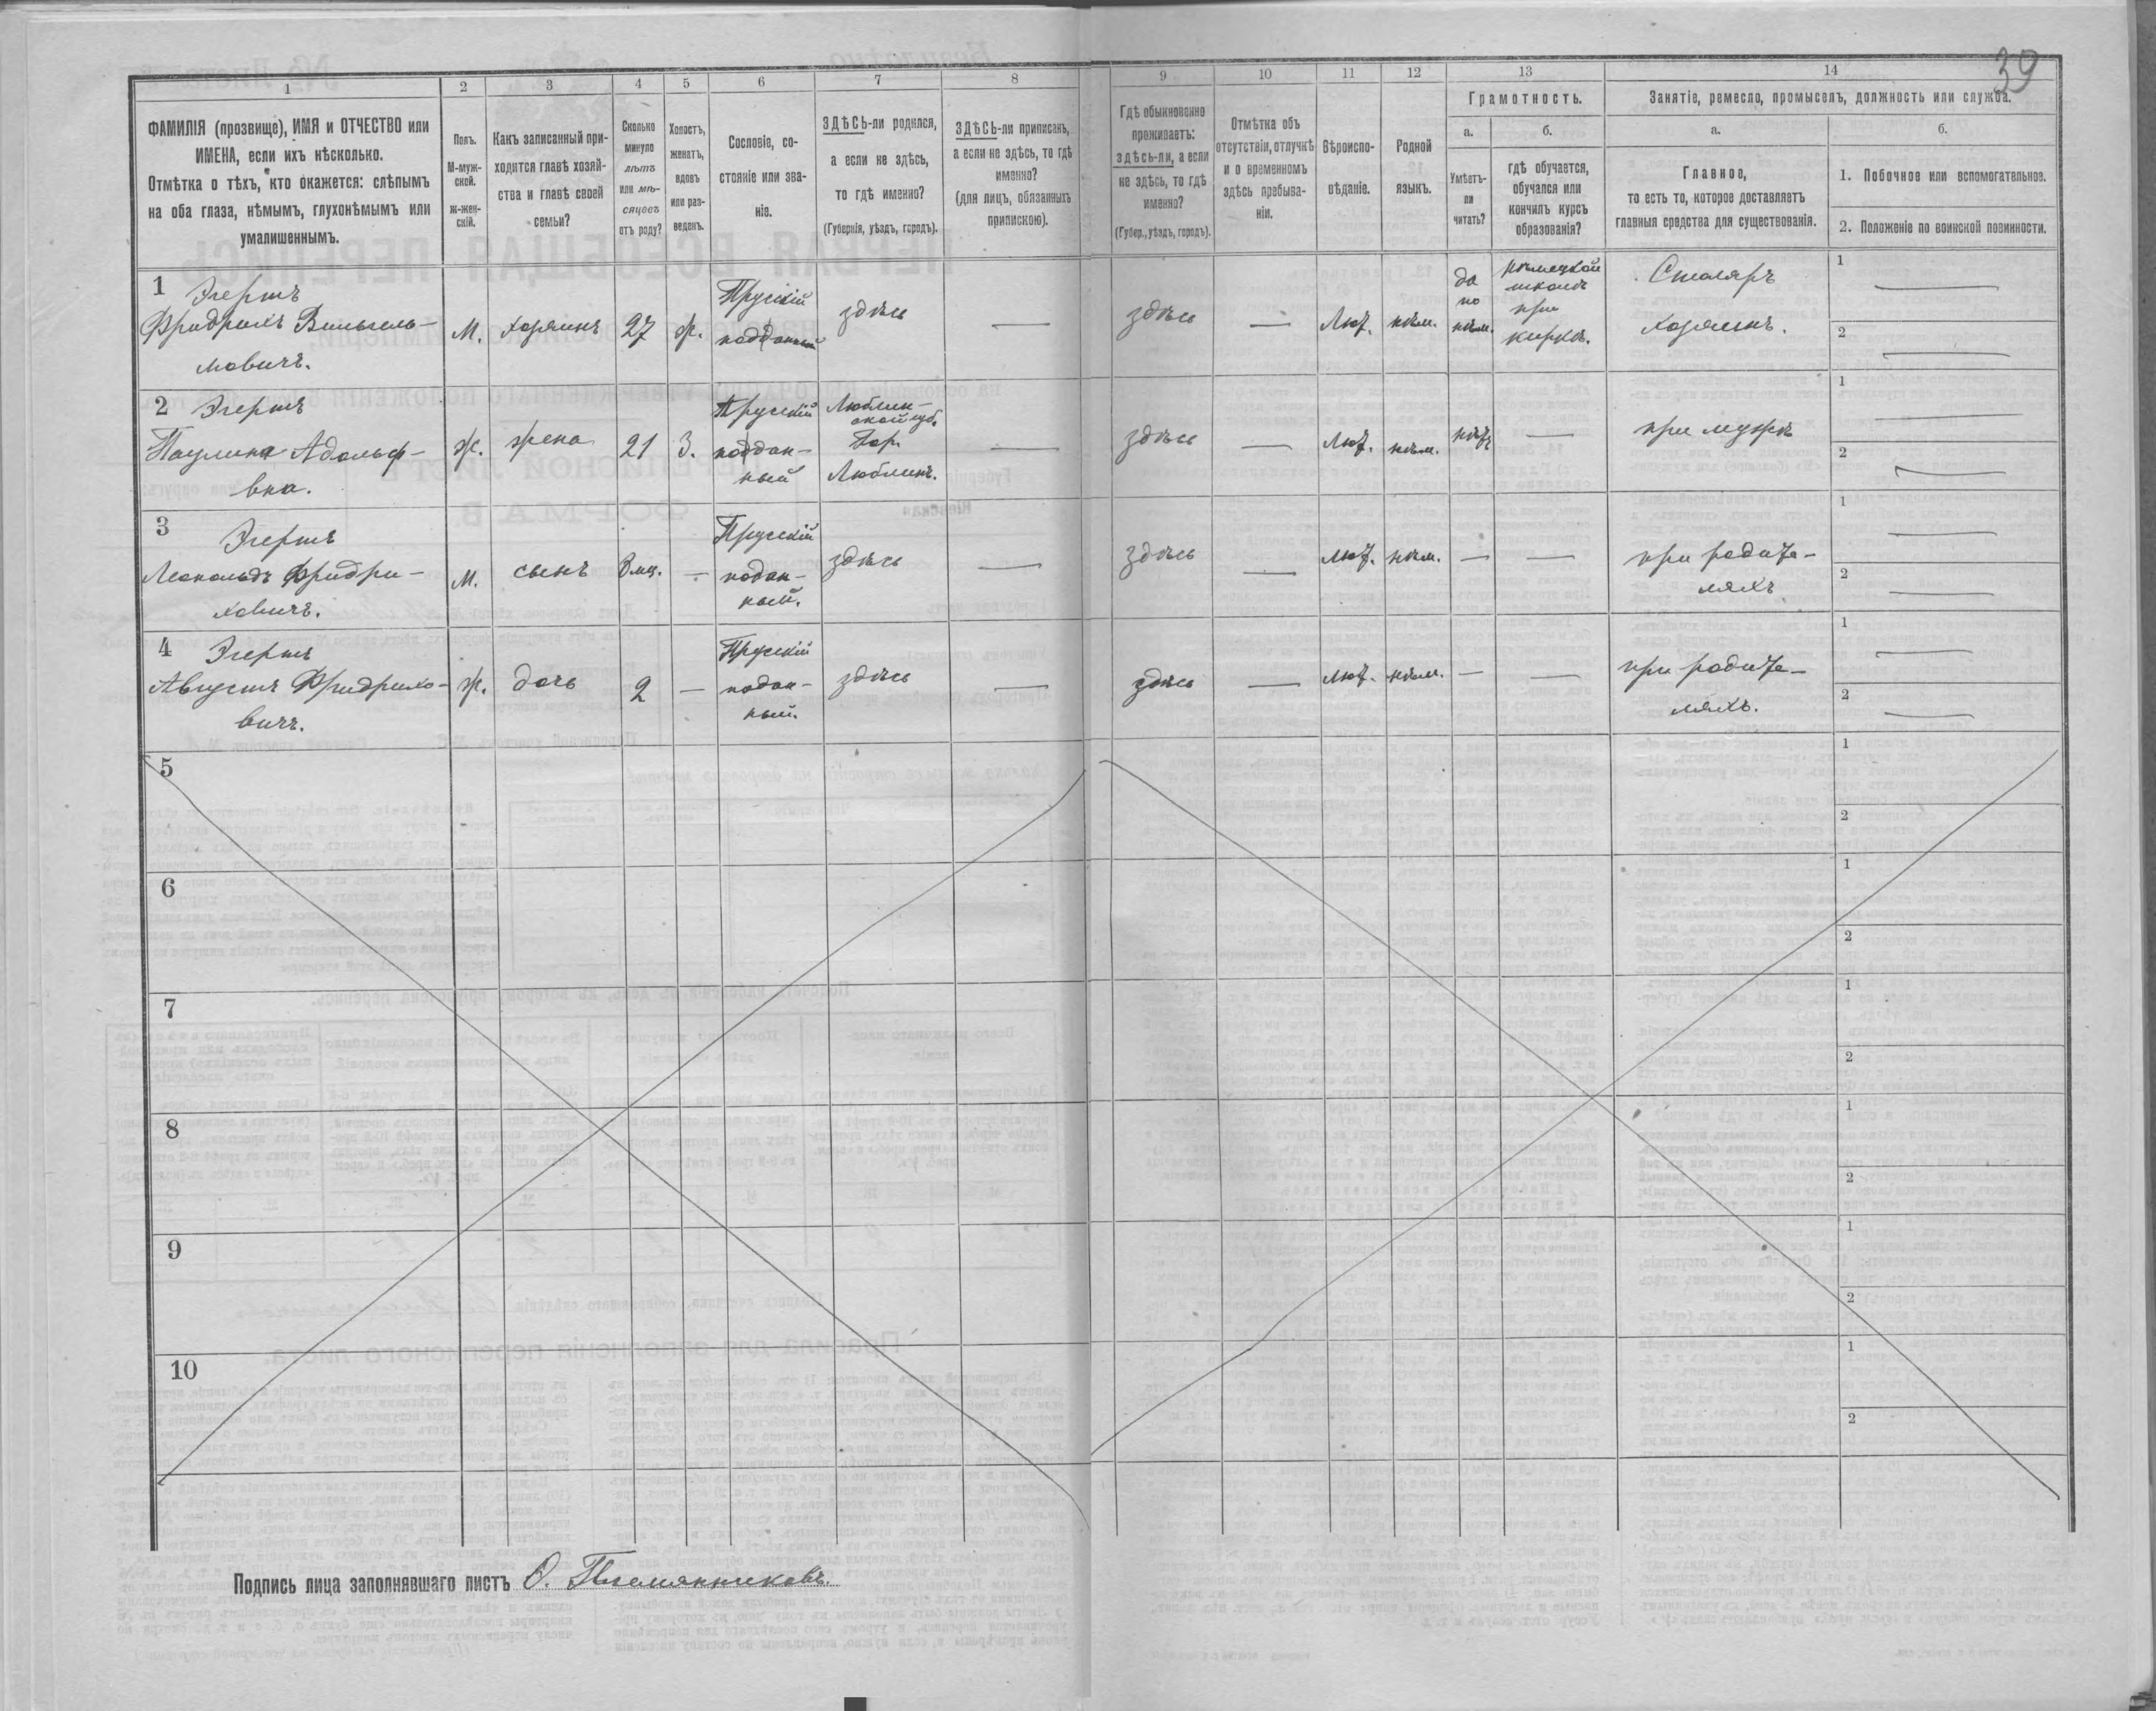 39
1
2
3
4
5
6
7
8
9
10
11
12
13
14
ФАМИЛІЯ (прозвище), ИМЯ и ОТЧЕСТВО или
ИМЕНА, если ихъ нѣсколько.
Отмѣтка о тѣхъ, кто окажется: слѣпымъ
на оба глаза, нѣмымъ, глухонѣмымъ или
умалишеннымъ.
Полъ.
М-муж-
ской.
ж-жен-
скій.
Какъ записанный при-
ходится главѣ хозяй-
ства и главѣ своей
семьи?
Сколько
минуло
лѣтъ
или мѣ-
сяцевъ
отъ роду?
Холостъ,
женатъ,
вдовъ
или раз-
веденъ.
Сословіе, со-
стояніе или зва-
ніе.
ЗДѢСЬ-ли родился,
а если не здѣсь,
то гдѣ именно?
(Губернія, уѣздъ, городъ).
ЗДѢСЬ-ли приписанъ,
а если не здѣсь, то гдѣ
именно?
(для лицъ, обязанныхъ
припискою).
Гдѣ обыкновенно
проживаетъ:
здѣсь-ли, а если
не здѣсь, то гдѣ
именно?
(Губер., уѣздъ, городъ).
Отмѣтка объ
отсутствіи, отлучкѣ
и о временномъ
здѣсь пребыва-
ніи.
Вѣроиспо-
вѣданіе.
Родной
языкъ.
Грамотность.
а.
Умѣетъ-
ли
читать?
б.
гдѣ обучается,
обучался или
кончилъ курсъ
образованія?
Занятіе, ремесло, промыселъ, должность или служба.
а.
Главное,
то есть то, которое доставляетъ
главныя средства для существованія.
б.
1. Побочное или вспомогательное.
2. Положеніе по воинской повинности.
1
Эгертъ
Фридрихъ Вильгель-
мовичъ.
М.
хозяинъ
27
ж.
Прусскій
подданный
здѣсь
—
здѣсь
—
Лют.
нѣм.
да
по
нѣм.
нѣмецкой
школѣ
при
киркѣ.
Столяръ
хозяинъ.
1 —
2 —
2
Эгертъ
Паулина Адольф-
вна.
ж.
жена
21
З.
Прусскій
поддан-
ный
Люблин-
ской губ.
Гор.
Люблинъ.
—
здѣсь
—
Лют.
нѣм.
нѣтъ
—
при мужѣ
1 —
2 —
3
Эгертъ
Леопольдъ Фридри-
ховичъ.
М.
сынъ
8 мц.
—
Прусскій
подан-
ный.
здѣсь
—
здѣсь
—
Лют.
нѣм.
—
—
при родите-
ляхъ
1 —
2 —
4
Эгертъ
Августъ Фридрихо-
вичъ.
ж.
дочь
2
—
Прусскій
подан-
ный.
здѣсь
—
здѣсь
—
Лют.
нѣм.
—
—
при родите-
ляхъ.
1 —
2 —
5
1
2
6
1
2
7
1
2
8
1
2
9
1
2
10
1
2
Подпись лица заполнявшаго листъ О. Племянниковъ.